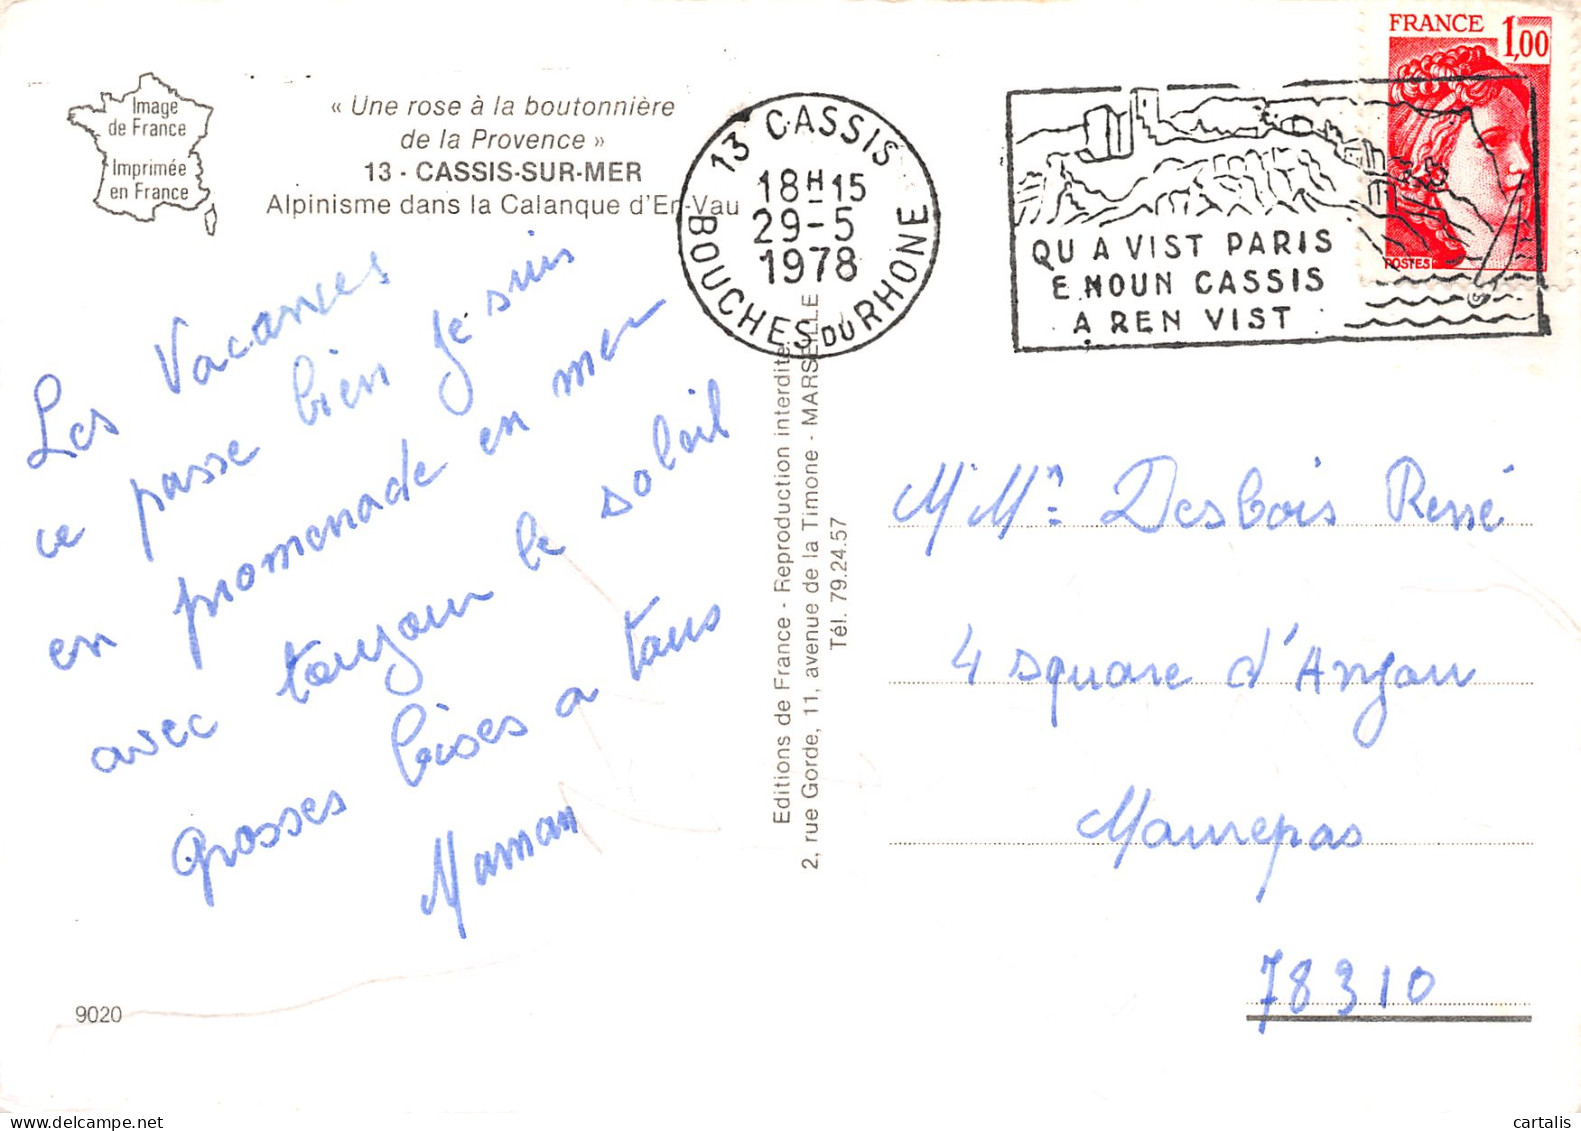 Image
de France
Imprimée
en France
« Une rose à la boutonnière
de la Provence »
13 - CASSIS-SUR-MER
Alpinisme dans la Calanque d'En-Vau
13 CASSIS
18H15
29-5
1978
BOUCHES DU RHONE
QU A VIST PARIS
E NOUN CASSIS
A REN VIST
FRANCE 1,00
POSTES
Les Vacances
ce passe bien je suis
en promenade en mer
avec toujour le soleil
Grosses bises a tous
Maman
Editions de France - Reproduction interdite
2, rue Gorde, 11, avenue de la Timone - MARSEILLE
Tél. 79.24.57
M Mme Desbois René
4 square d'Anjou
Maurepas
78310
9020
cartalis